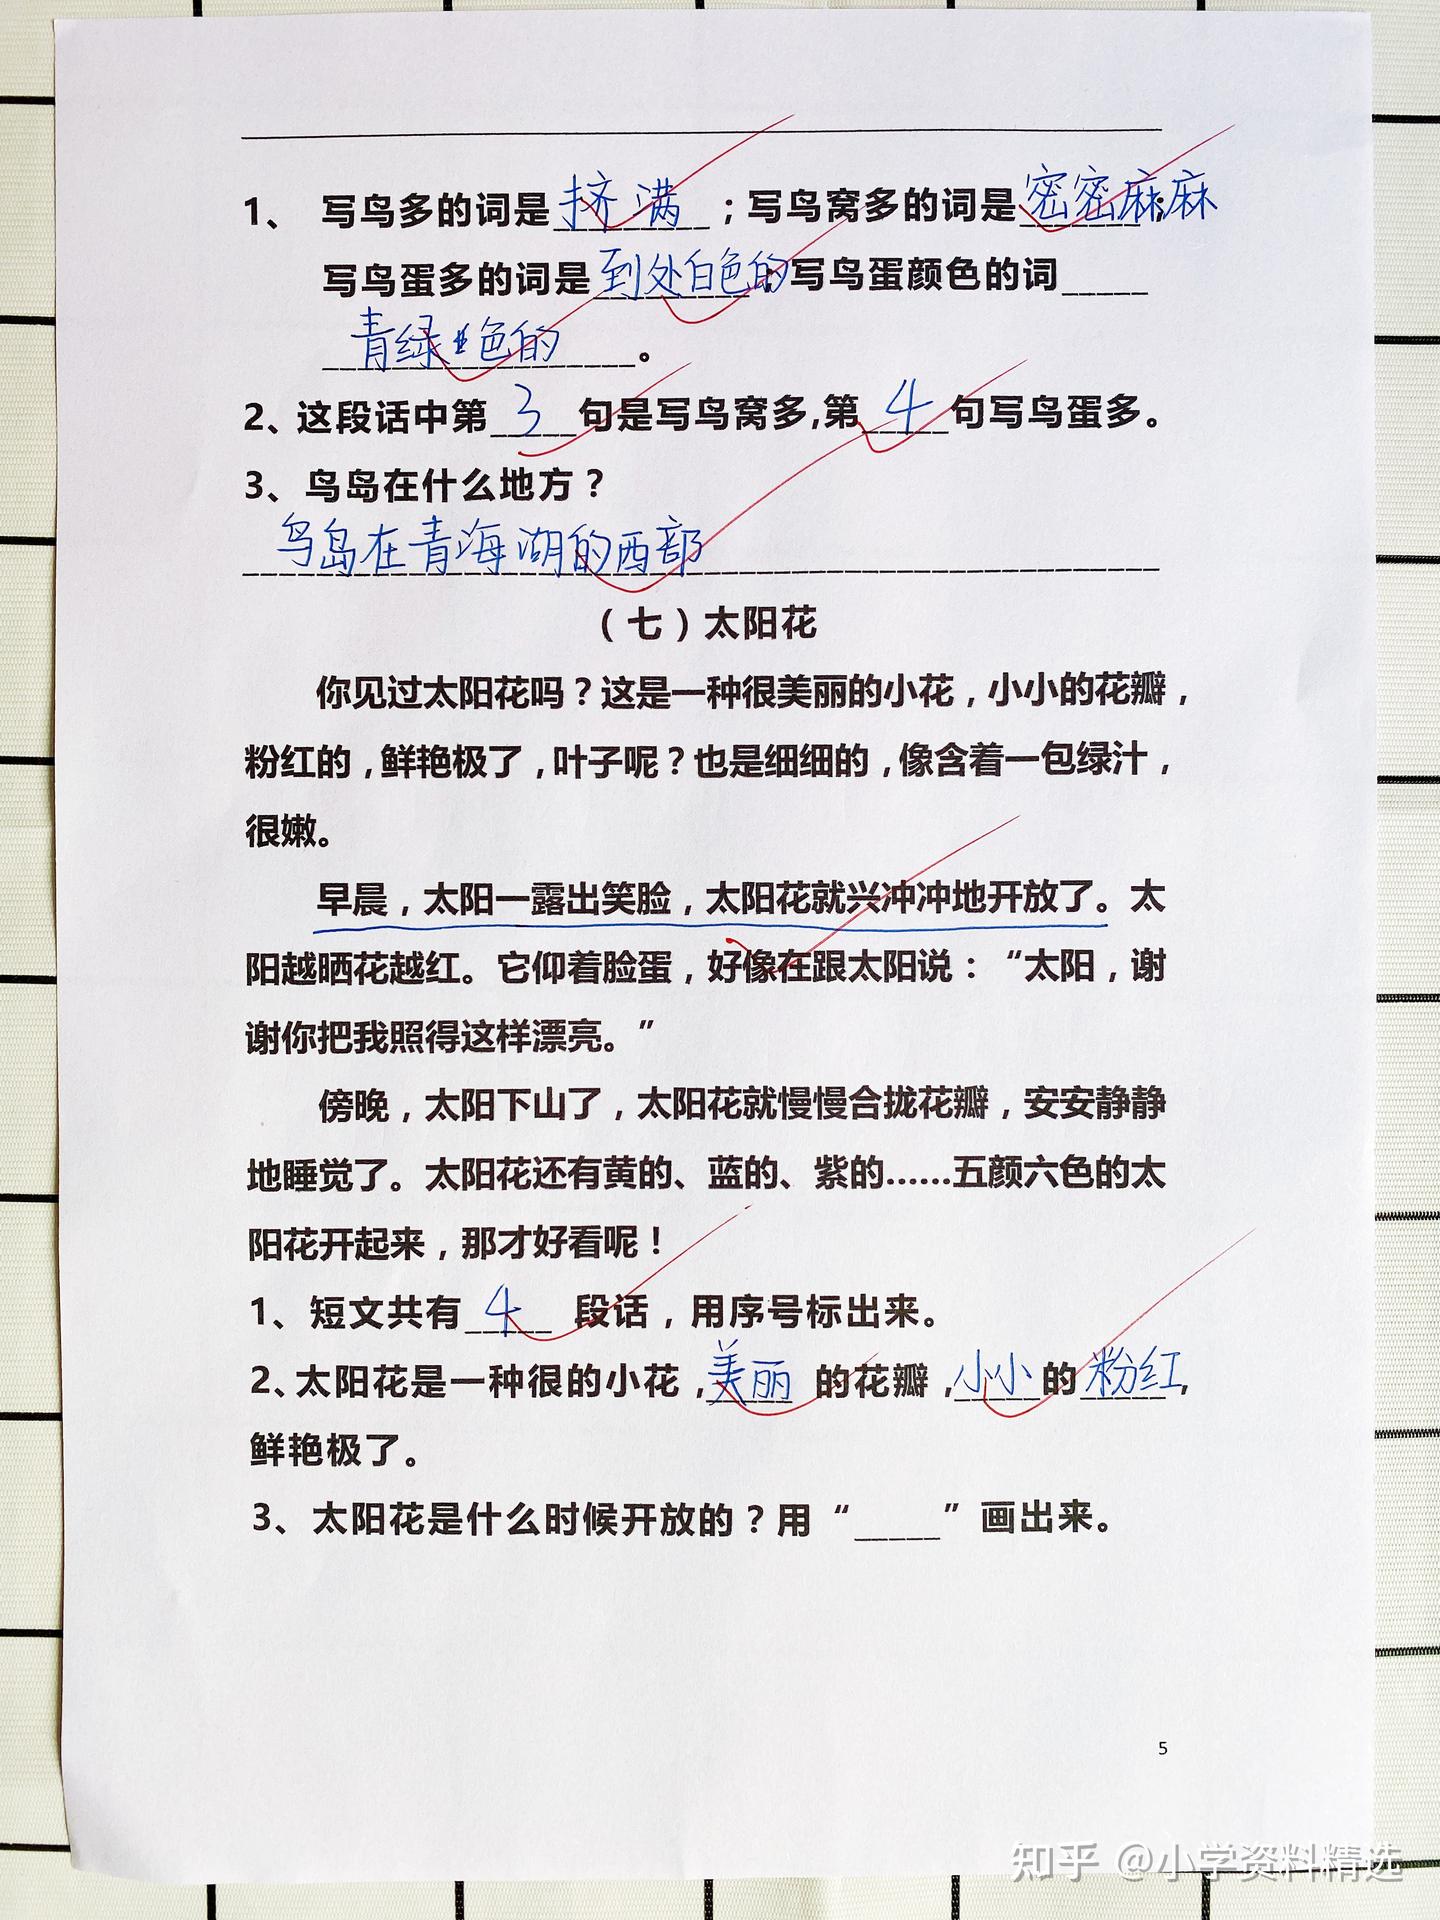 1、 写鸟多的词是挤满；写鸟窝多的词是密密麻麻；
写鸟蛋多的词是到处白色的；写鸟蛋颜色的词_____
青绿色的。
2、这段话中第3句是写鸟窝多,第4句写鸟蛋多。
3、鸟岛在什么地方？
鸟岛在青海湖的西部
（七）太阳花
你见过太阳花吗？这是一种很美丽的小花，小小的花瓣，
粉红的，鲜艳极了，叶子呢？也是细细的，像含着一包绿汁，
很嫩。
早晨，太阳一露出笑脸，太阳花就兴冲冲地开放了。太
阳越晒花越红。它仰着脸蛋，好像在跟太阳说：“太阳，谢
谢你把我照得这样漂亮。”
傍晚，太阳下山了，太阳花就慢慢合拢花瓣，安安静静
地睡觉了。太阳花还有黄的、蓝的、紫的......五颜六色的太
阳花开起来，那才好看呢！
1、短文共有4段话，用序号标出来。
2、太阳花是一种很的小花，美丽的花瓣，小小的粉红，
鲜艳极了。
3、太阳花是什么时候开放的？用“_____”画出来。
5
知乎 @小学资料精选